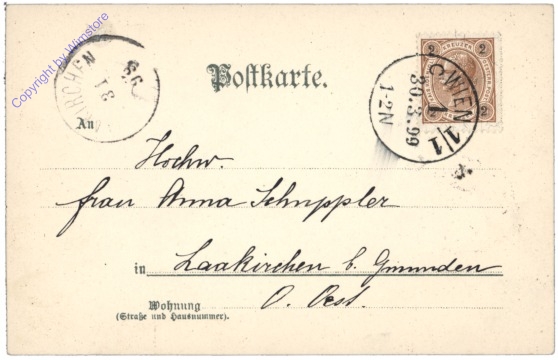 Copyright by Wimstore
Postkarte.
KIRCHEN
31
99
2 KREUZER 2
2 2
WIEN 1/1
1
30.3.99
1-2N
An
Hochw.
Frau Anna Schuppler
in Laakirchen b. Gmunden
O. Oest.
Wohnung
(Straße und Hausnummer).